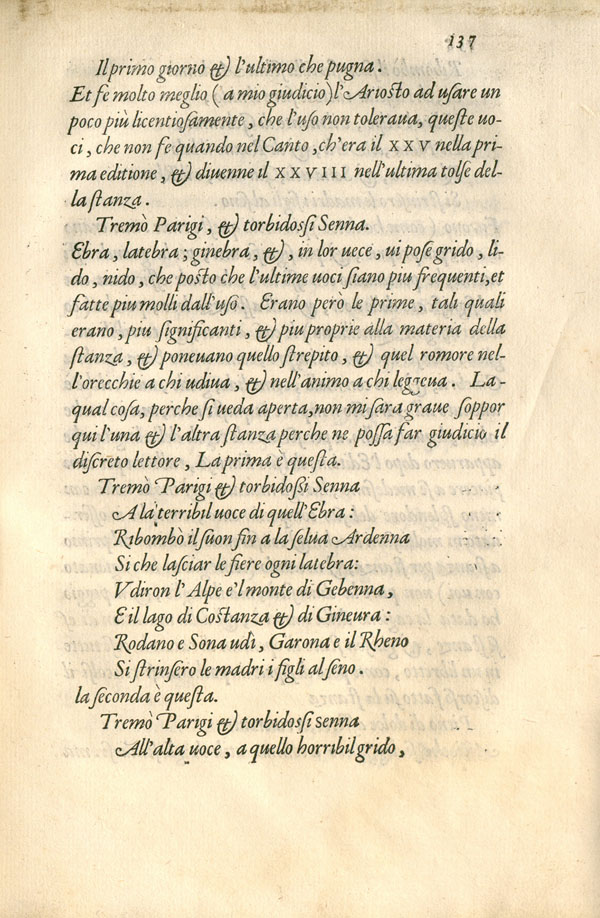 137
Il primo giorno & l'ultimo che pugna.
Et fe molto meglio ( a mio giudicio) l'Ariosto ad usare un
poco più licentiosamente, che l'uso non toleraua, queste uo-
ci, che non fe quando nel Canto, ch'era il XXV nella pri-
ma editione, & diuenne il XXVIII nell'ultima tolse del-
la stanza.
Tremò Parigi, & torbidossi Senna.
Ebra, latebra; ginebra, &, in lor uece, ui pose grido, li-
do, nido, che posto che l'ultime uoci siano piu frequenti, et
fatte piu molli dall'uso. Erano però le prime, tali quali
erano, piu significanti, & piu proprie alla materia della
stanza, & poneuano quello strepito, & quel romore nel-
l'orecchie a chi udiua, & nell'animo a chi leggeua. La-
qual cosa, perche si ueda aperta, non mi sara graue soppor
qui l'una & l'altra stanza perche ne possa far giudicio il
discreto lettore, La prima è questa.
Tremò Parigi & torbidossi Senna
A la terribil uoce di quell'Ebra:
Ribombò il suon fin a la selua Ardenna
Si che lasciar le fiere ogni latebra:
Vdiron l'Alpe e'l monte di Gebenna,
E il lago di Costanza & di Gineura:
Rodano e Sona udì, Garona e il Rheno
Si strinsero le madri i figli al seno.
la seconda è questa.
Tremò Parigi & torbidossi senna
All'alta uoce, a quello horribil grido,